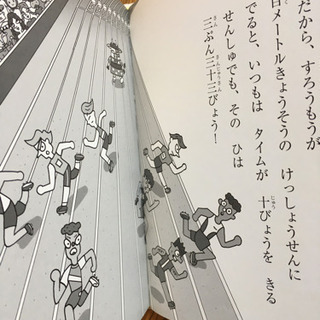 だから、すろうもうが
百メートルきょうそうの けっしょうせんに
でると、いつもは タイムが 十びょうを きる
せんしゅでも、その ひは
三ぷん三十三びょう！